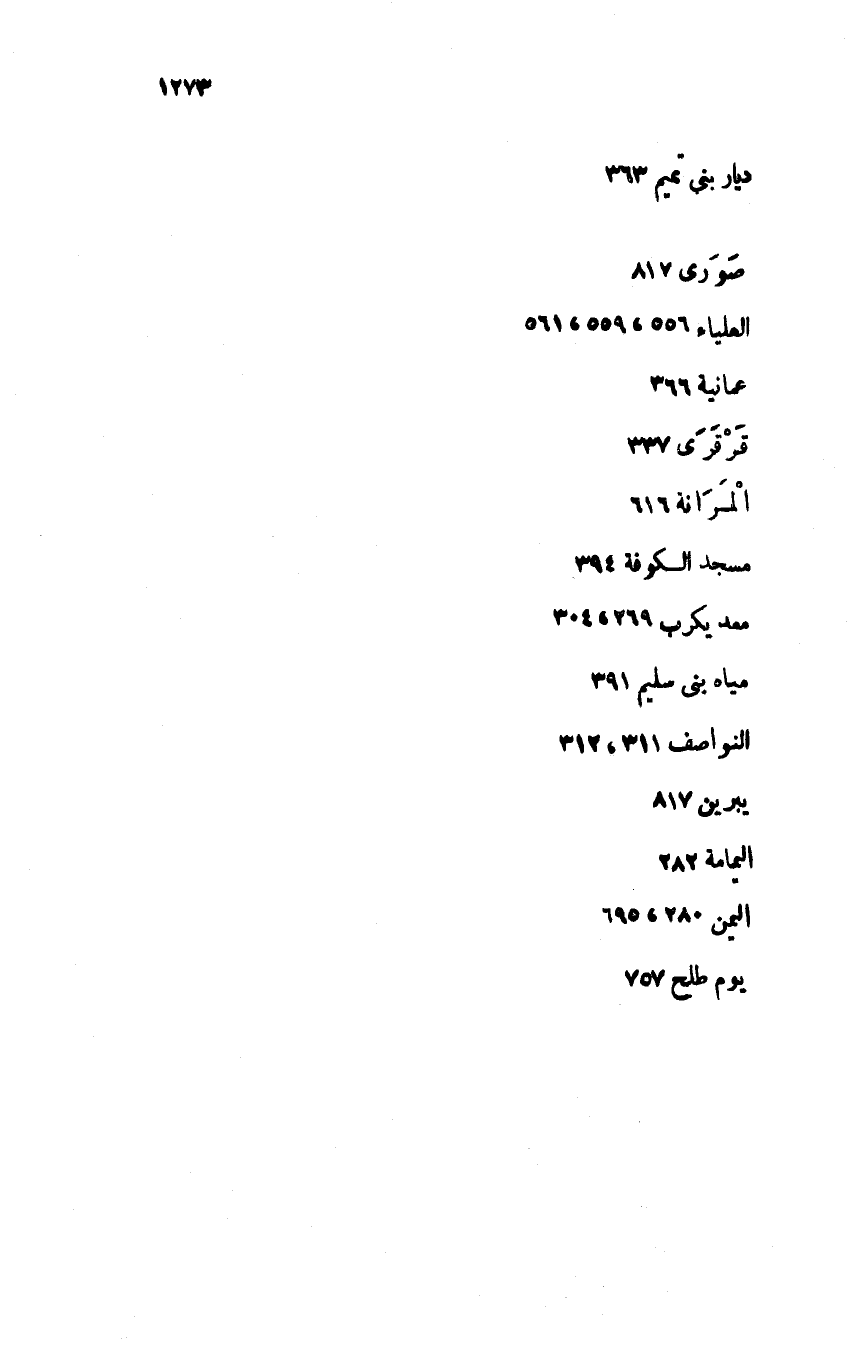 ١٢٧٣
ديار بني تميم ٣٦٣
صَوَرى ٨١٧
العلياء ٥٥٦ ، ٥٥٩ ، ٥٦١
عمانية ٣٦٦
قَرْقَرَى ٣٣٧
الْمَرَانة ٦١٦
مسجد الكوفة ٣٩٤
معد يكرب ٢٦٩ ، ٣٠٤
مياه بنى سليم ٣٩١
النواصف ٣١١ ، ٣١٢
يبرين ٨١٧
اليمامة ٢٨٢
اليمن ٢٨٠ ، ٦٩٥
يوم طلح ٧٥٧